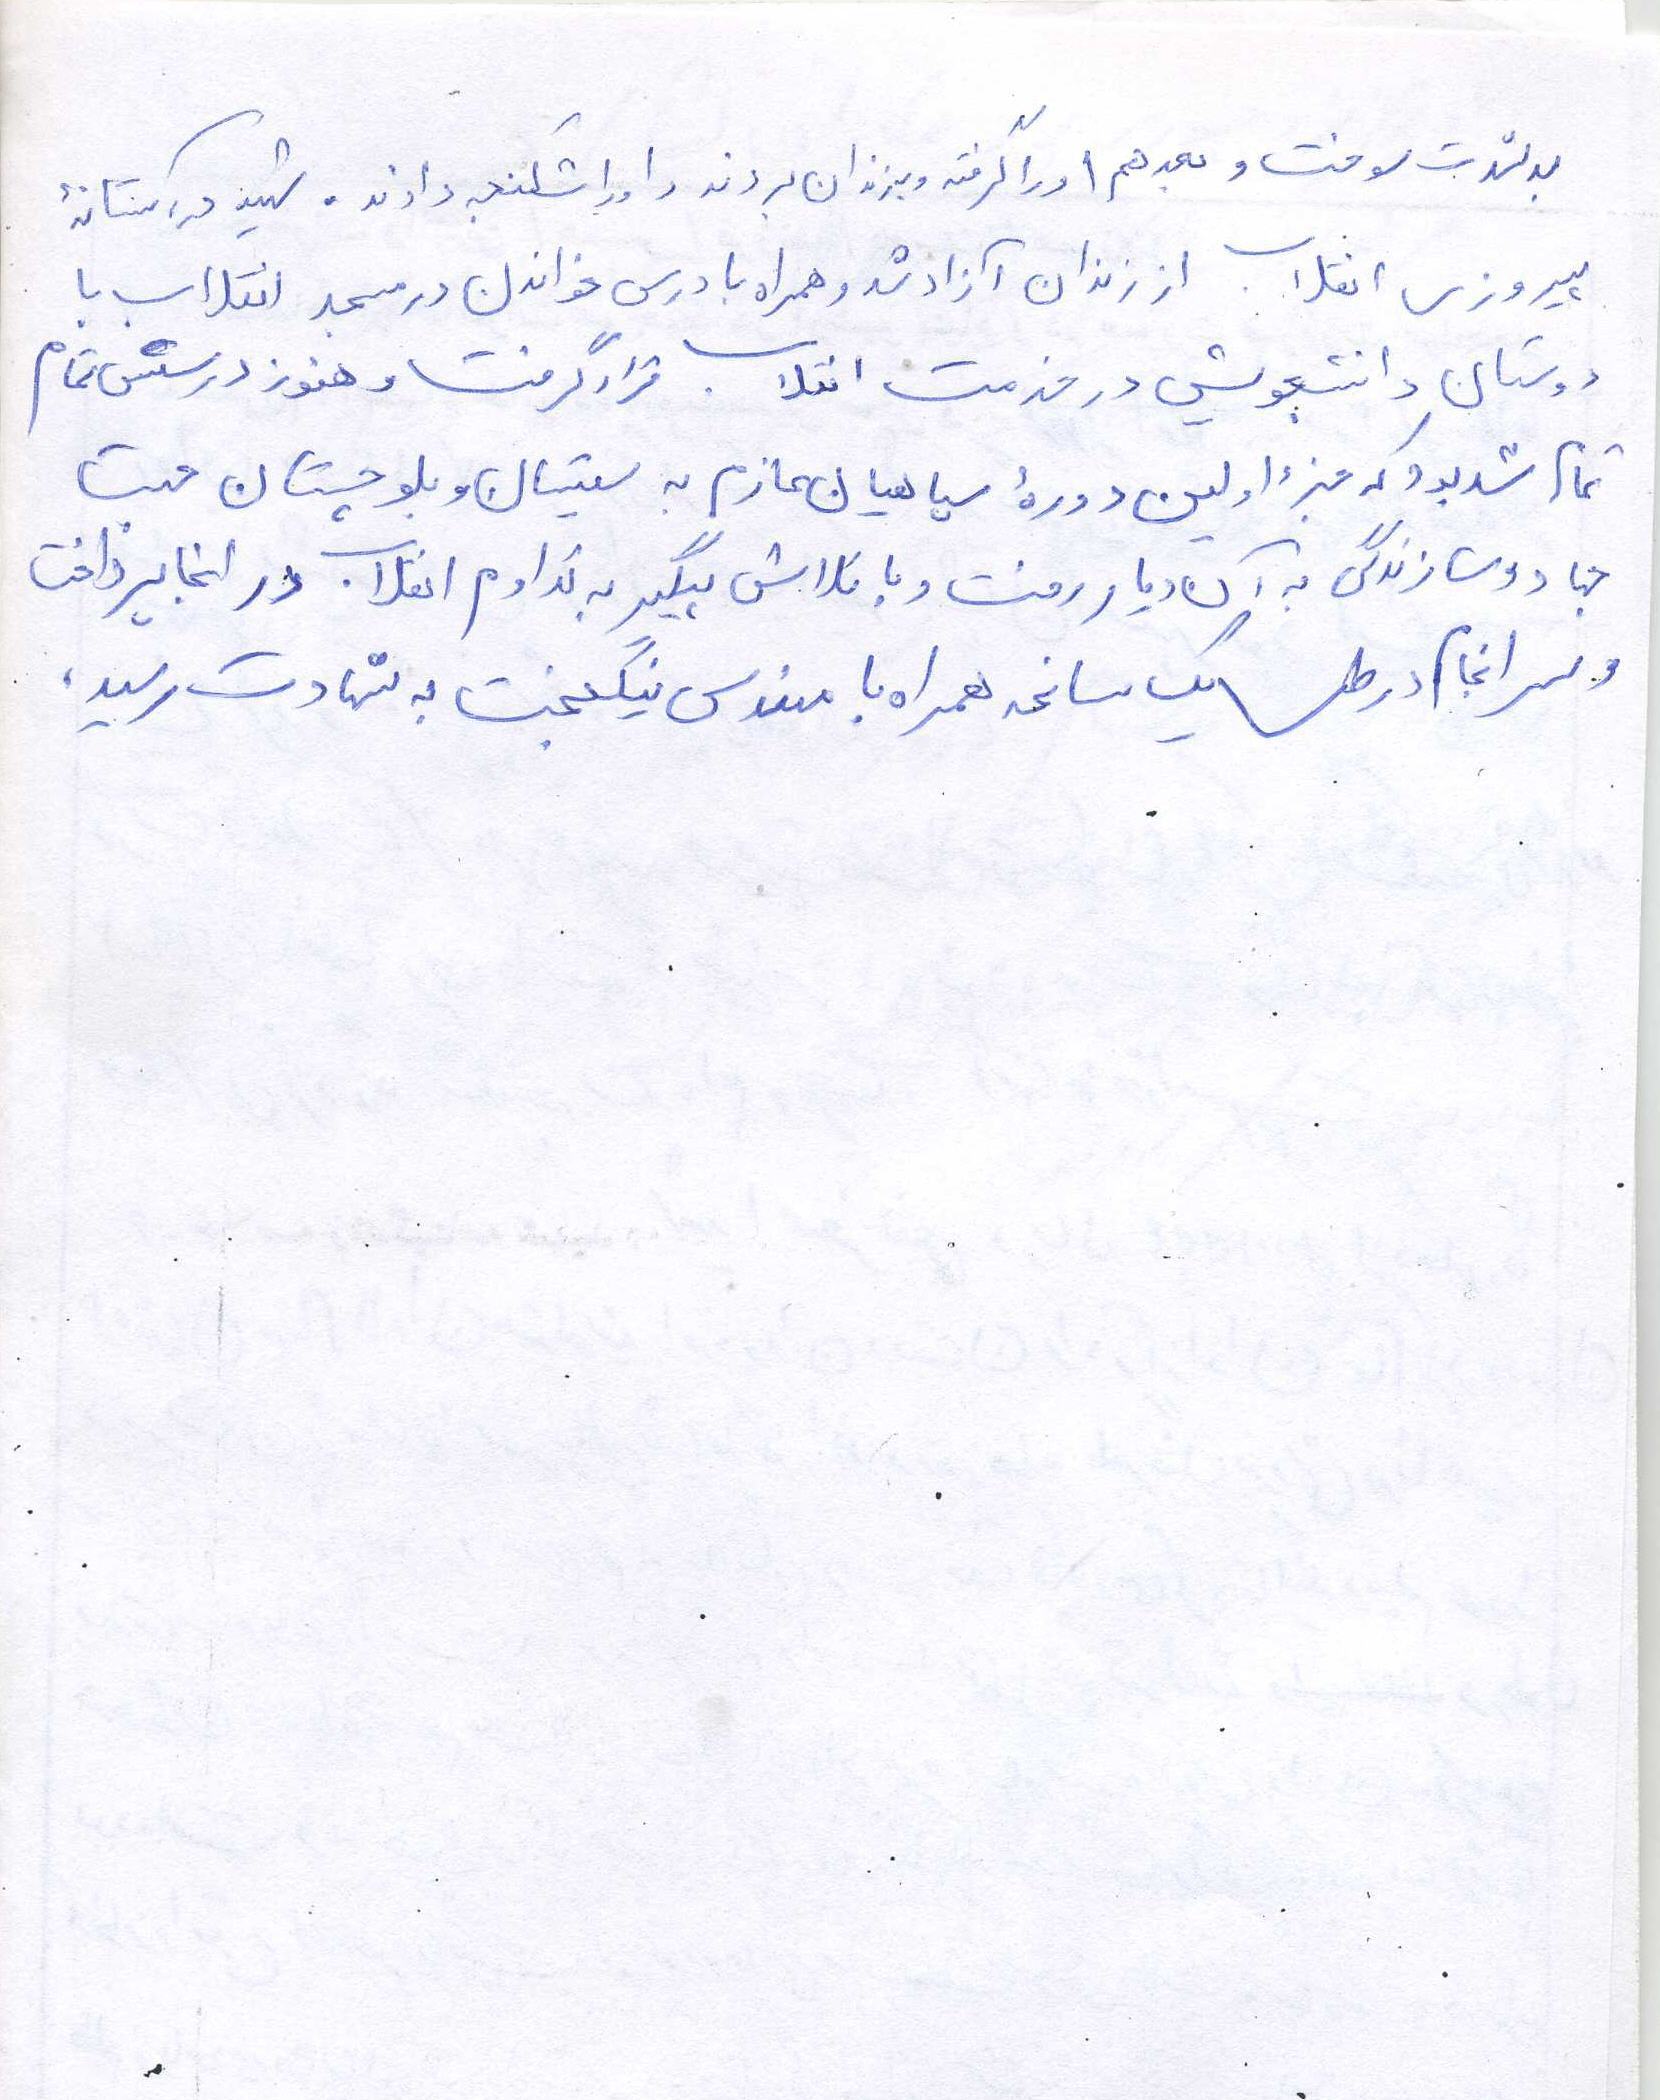 بدنش سوخت و بعد هم او را گرفته و بزندان بردند و او را شکنجه دادند. شهید در آستانهٔ
پیروزی انقلاب از زندان آزاد شد و همراه با درس خواندن در مسجد انقلاب با
دوستان دانشجویش در خدمت انقلاب قرار گرفت و هنوز درسش تمام
تمام نشده بود که جزء اولین دورهٔ سپاهیان عازم به سیستان و بلوچستان جهت
جهاد و سازندگی به آن دیار رفت و با تلاش پیگیر به تداوم انقلاب در انجا پرداخت
و سرانجام در طی یک سانحه همراه با مهندس نیکبخت به شهادت رسید.